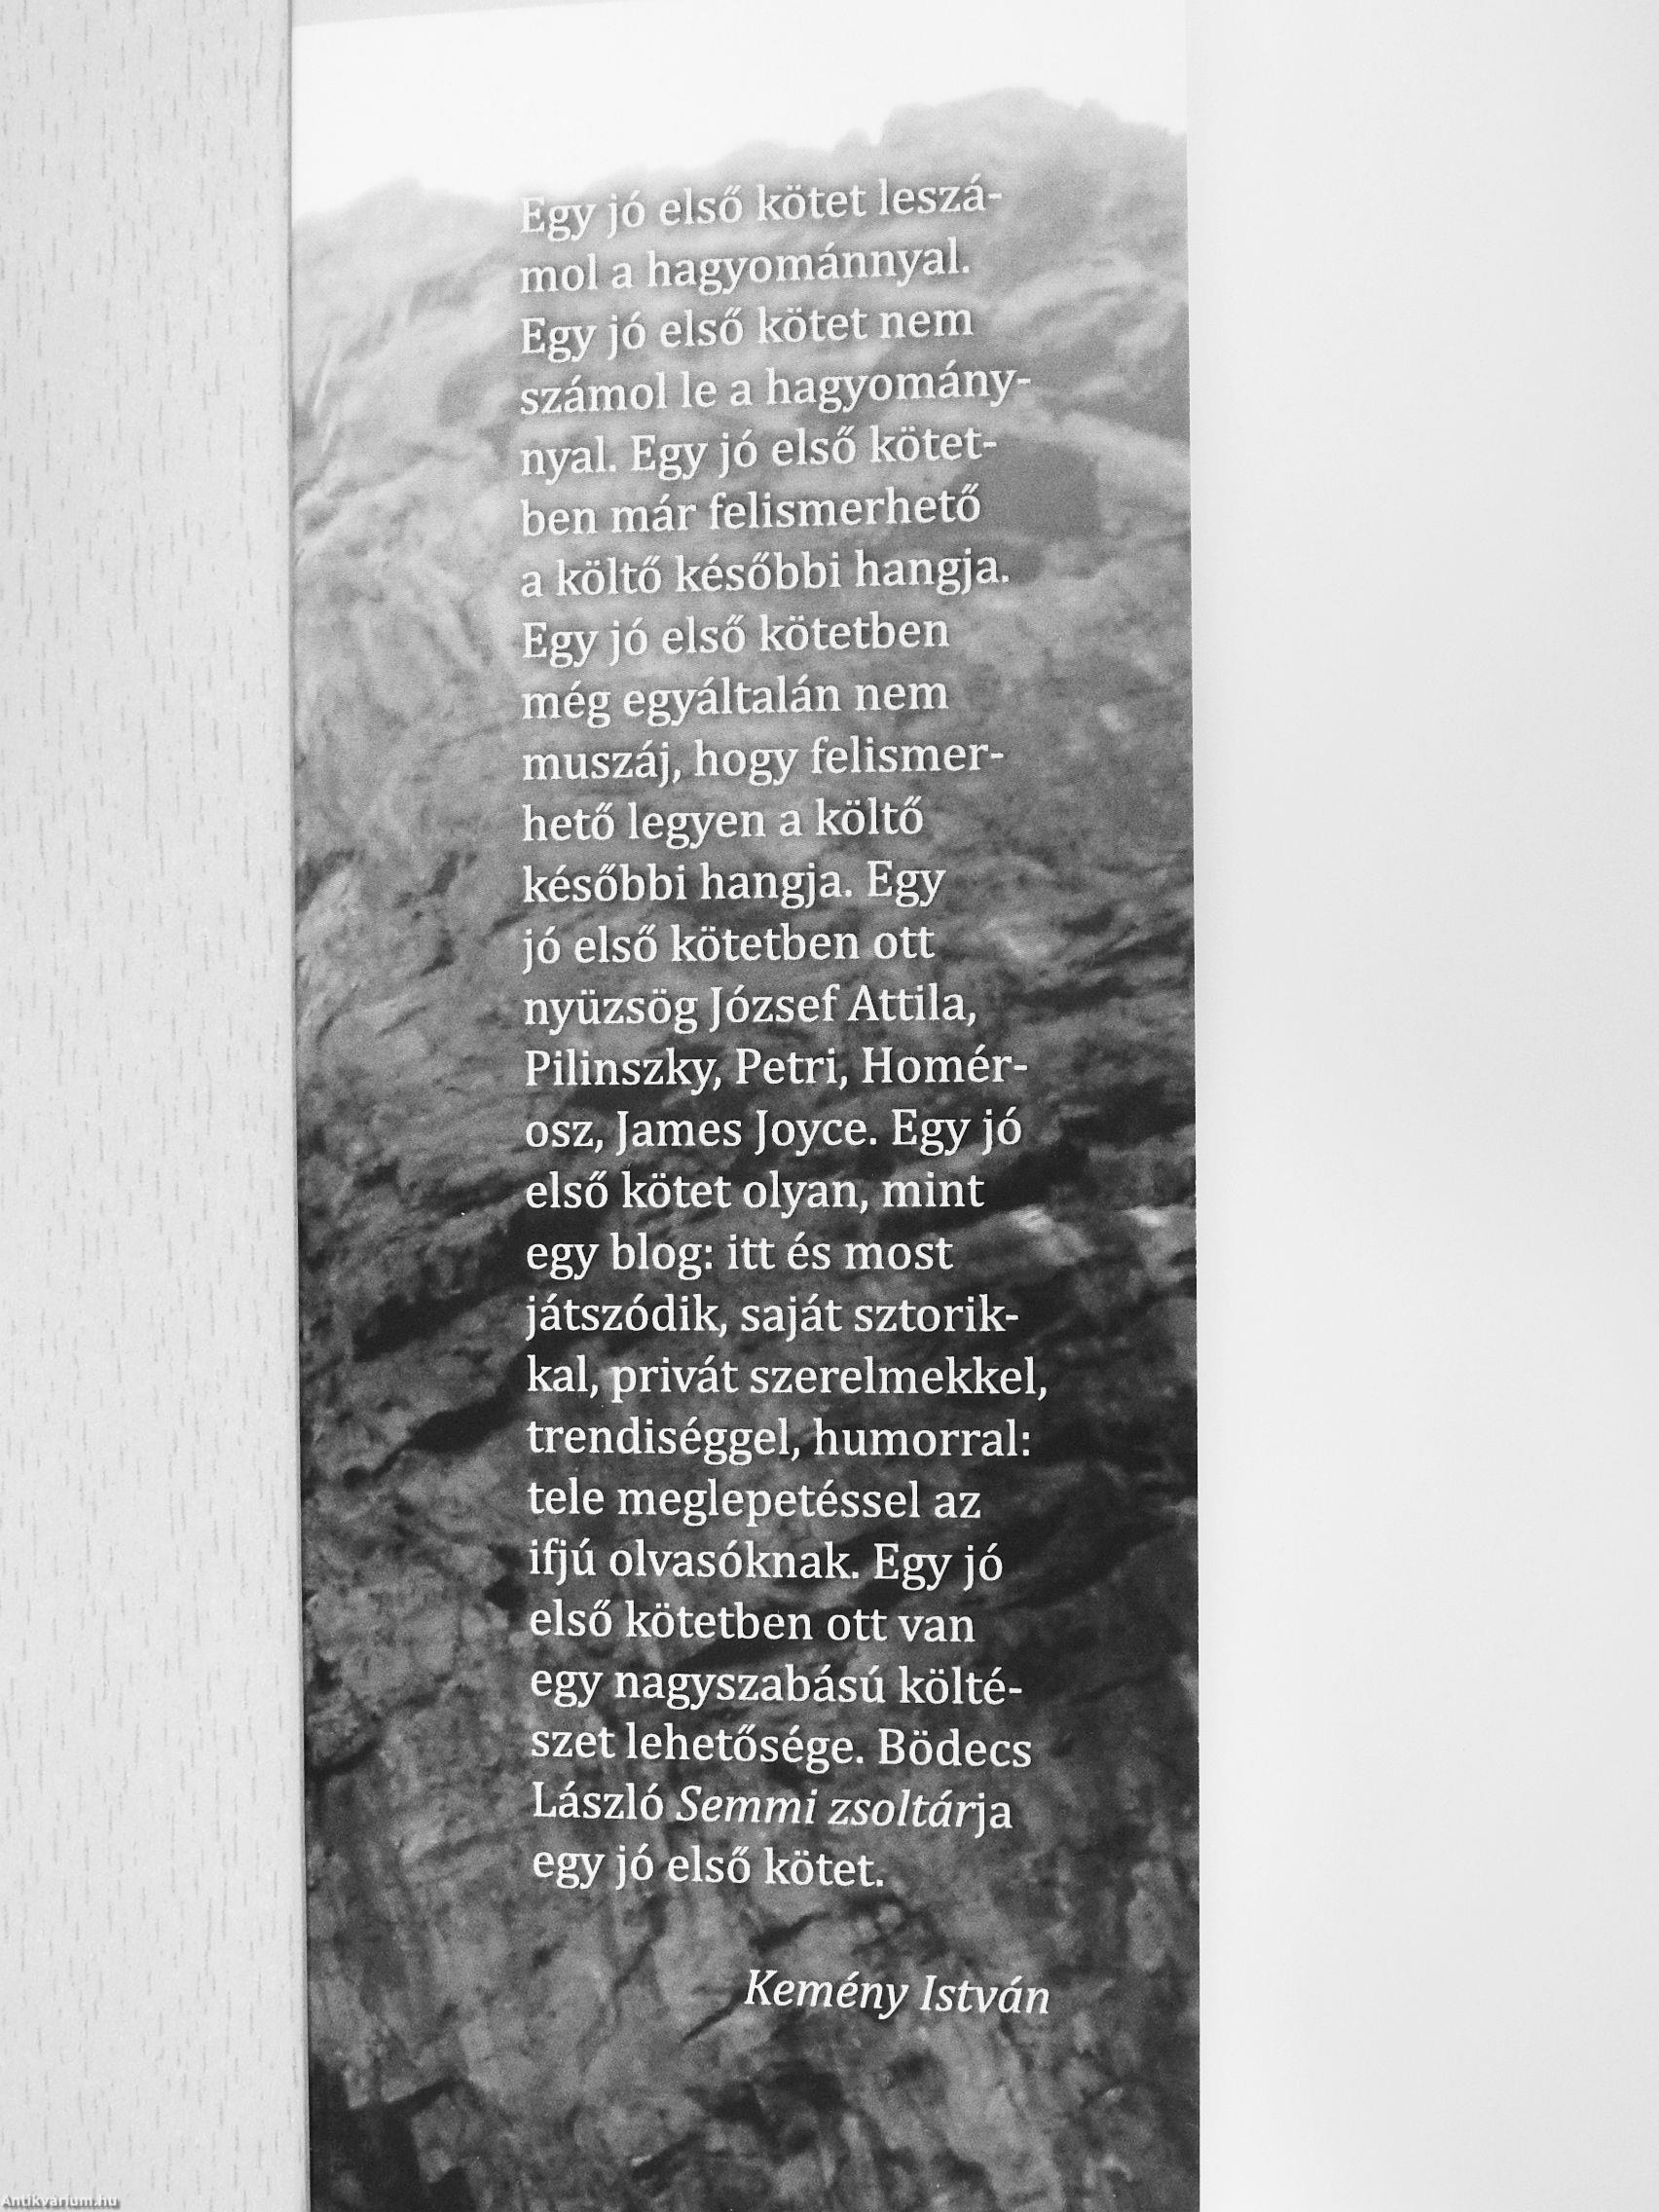 Egy jó első kötet leszá-
mol a hagyománnyal.
Egy jó első kötet nem
számol le a hagyomány-
nyal. Egy jó első kötet-
ben már felismerhető
a költő későbbi hangja.
Egy jó első kötetben
még egyáltalán nem
muszáj, hogy felismer-
hető legyen a költő
későbbi hangja. Egy
jó első kötetben ott
nyüzsög József Attila,
Pilinszky, Petri, Homér-
osz, James Joyce. Egy jó
első kötet olyan, mint
egy blog: itt és most
játszódik, saját sztorik-
kal, privát szerelmekkel,
trendiséggel, humorral:
tele meglepetéssel az
ifjú olvasóknak. Egy jó
első kötetben ott van
egy nagyszabású költé-
szet lehetősége. Bödecs
László Semmi zsoltárja
egy jó első kötet.
Kemény István
Antikvarium.hu